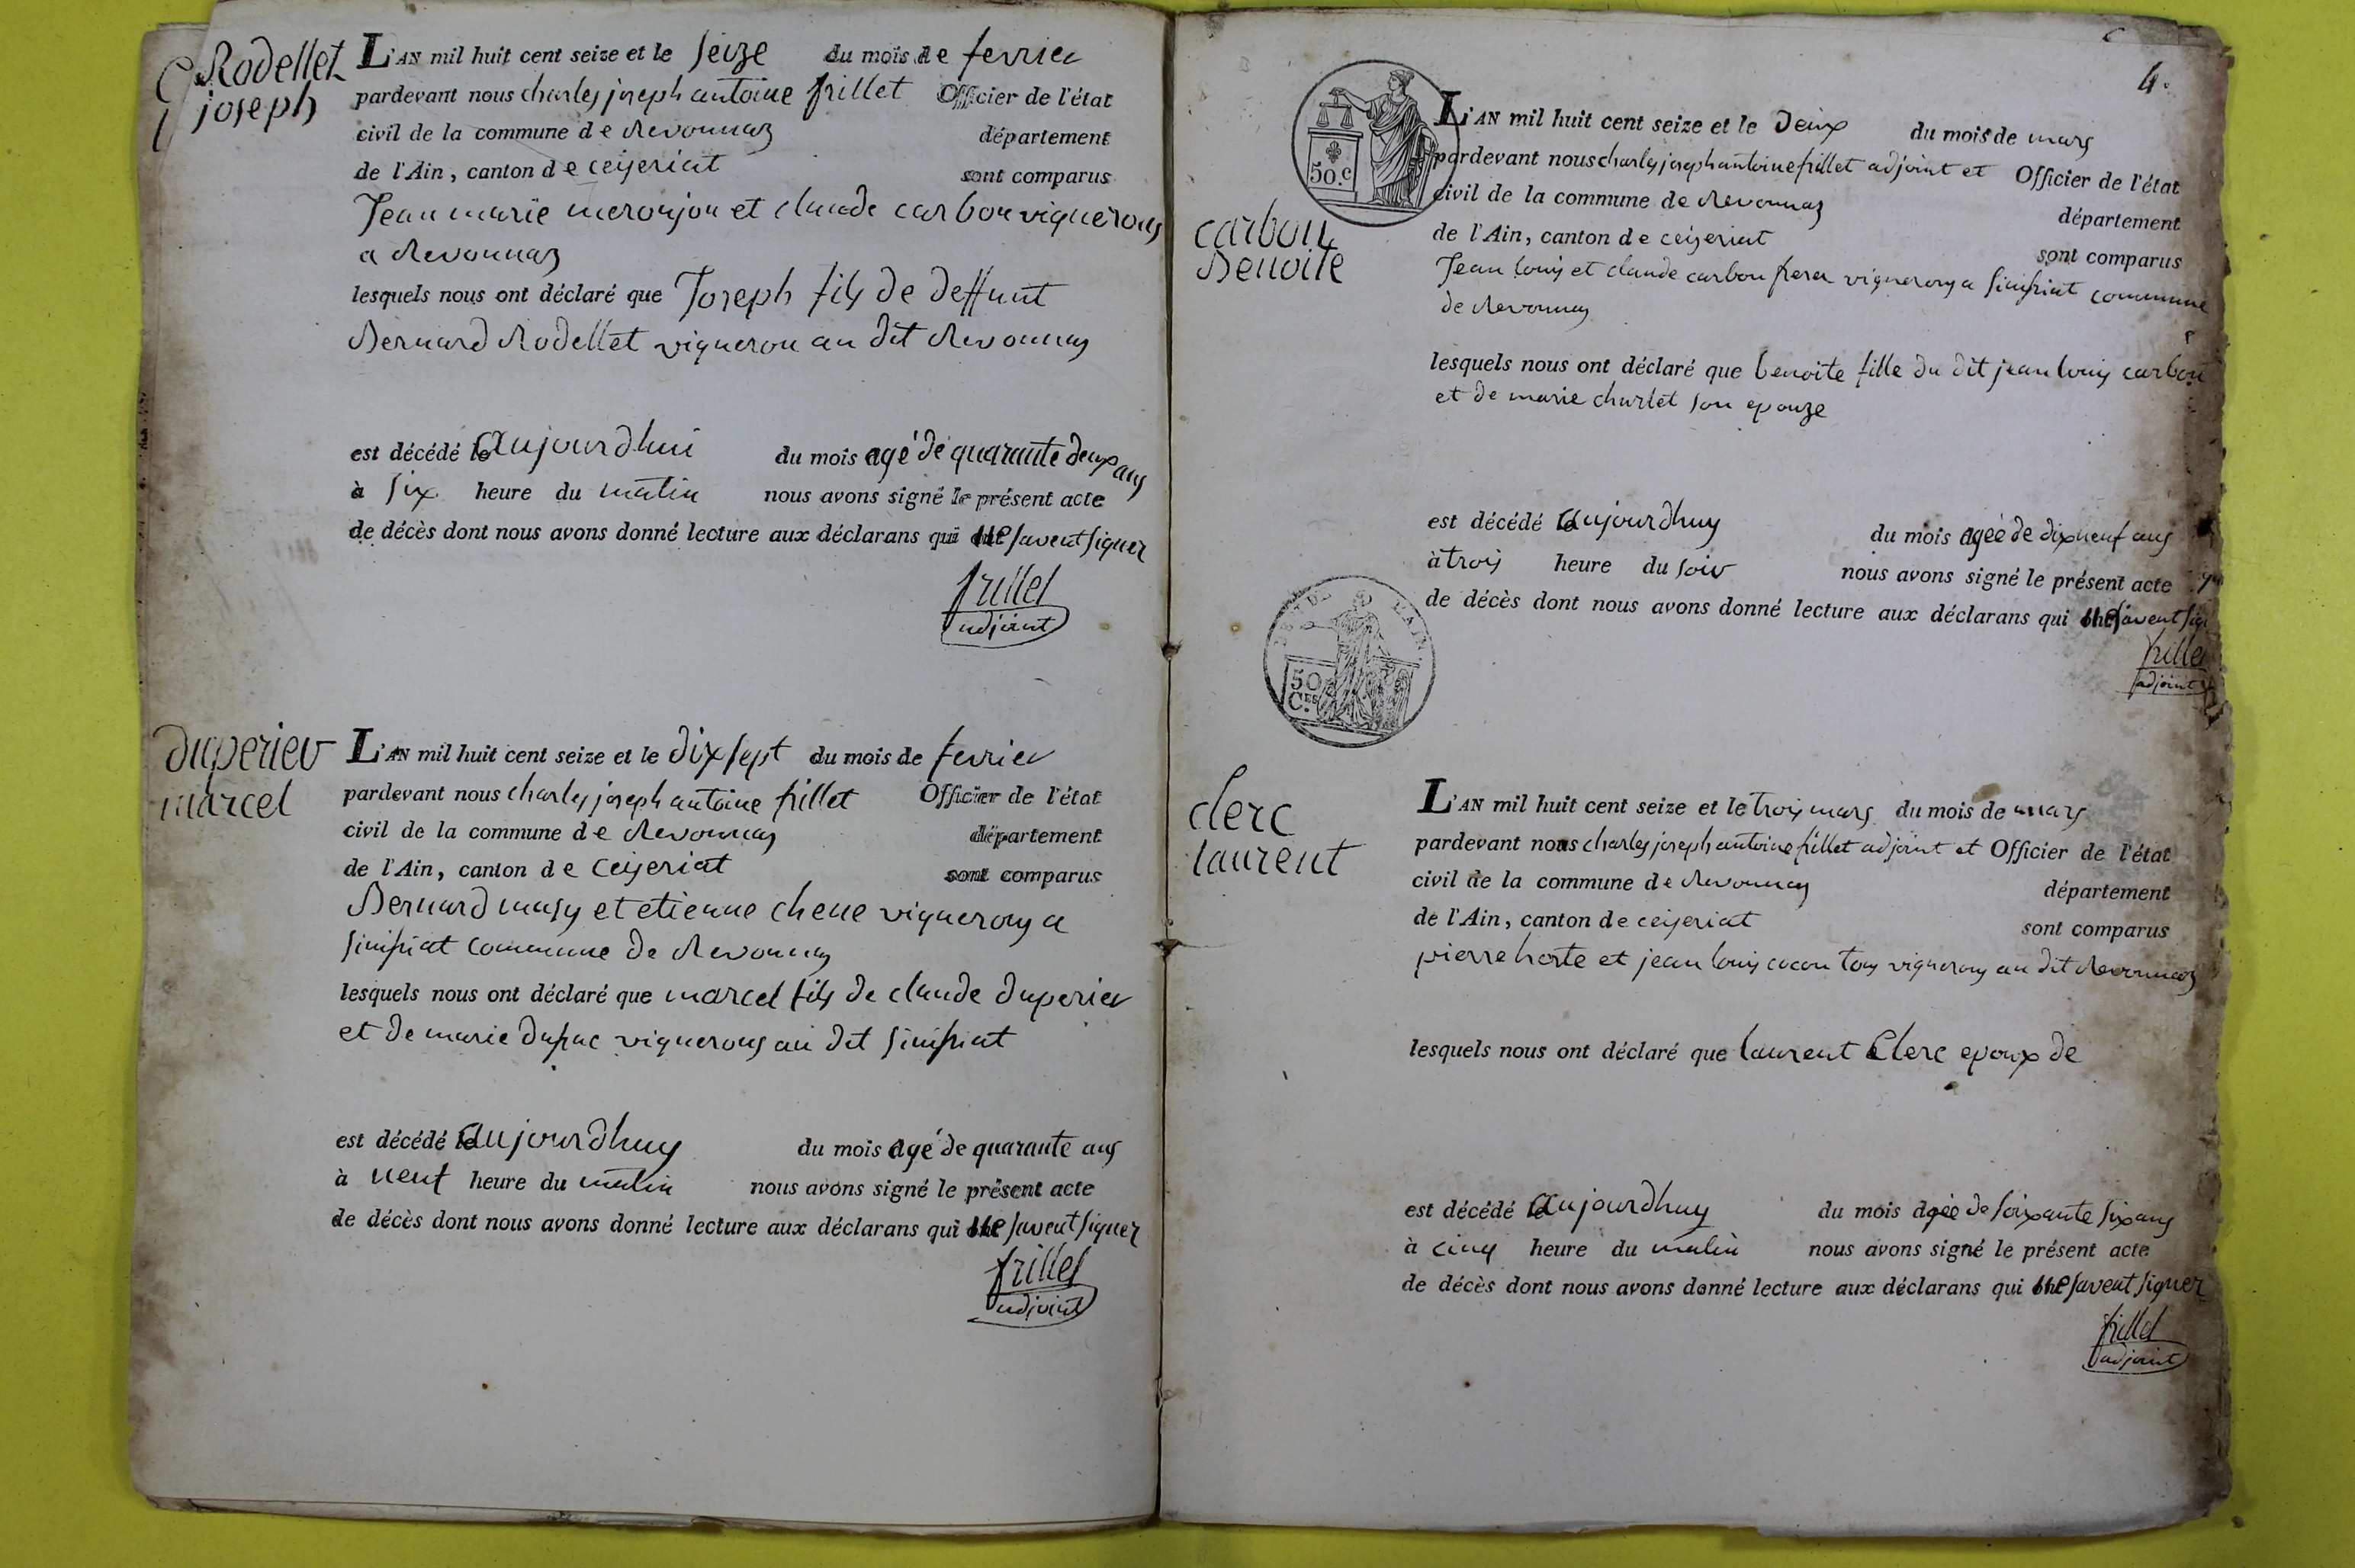 Rodellet
joseph
L'AN mil huit cent seize et le seize du mois de fevrier
pardevant nous charles joseph antoine frillet Officier de l'état
civil de la commune de Revonnaz département
de l'Ain, canton de ceyseriat sont comparus
Jean marie meronjon et claude carbon vignerons
a Revonnaz
lesquels nous ont déclaré que Joseph fils de deffunt
Bernard Rodellet vigneron au dit Revonnas
est décédé le aujourdhui du mois agé de quarante deux ans
à six heure du matin nous avons signé le présent acte
de décès dont nous avons donné lecture aux déclarans qui ne savent signer
frillet
adjoint
duperier
marcel
L'AN mil huit cent seize et le dix sept du mois de fevrier
pardevant nous charles joseph antoine frillet Officier de l'état
civil de la commune de Revonnas département
de l'Ain, canton de ceyseriat sont comparus
Bernard et etienne chene vignerons a
simfriat commune de Revonnas
lesquels nous ont déclaré que marcel fils de claude duperier
et de marie vignerons au dit simfriat
est décédé le aujourdhuy du mois agé de quarante ans
à neuf heure du matin nous avons signé le présent acte
de décès dont nous avons donné lecture aux déclarans qui ne savent signer
frillet
adjoint
4.
50.c
carbon
Benoite
L'AN mil huit cent seize et le deux du mois de mars
pardevant nous charles joseph antoine frillet adjoint et Officier de l'état
civil de la commune de Revonnaz département
de l'Ain, canton de ceyseriat sont comparus
Jean louis et claude carbon frere vignerons a simfriat commune
de Revonnas
lesquels nous ont déclaré que benoite fille du dit jean louis carbon
et de marie charlet son epouze
est décédé le aujourdhuy du mois agée de dixneuf ans
à trois heure du soir nous avons signé le présent acte
de décès dont nous avons donné lecture aux déclarans qui ne savent
frillet
adjoint
50
C.es
clerc
laurent
L'AN mil huit cent seize et le trois mars du mois de mars
pardevant nous charles joseph antoine frillet adjoint et Officier de l'état
civil de la commune de Revonnas département
de l'Ain, canton de ceyseriat sont comparus
pierre et jean louis tous vignerons au dit Revonnaz
lesquels nous ont déclaré que laurent Clerc epoux de
est décédé le aujourdhuy du mois agée de soixante six ans
à cinq heure du matin nous avons signé le présent acte
de décès dont nous avons donné lecture aux déclarans qui ne savent signer
frillet
adjoint